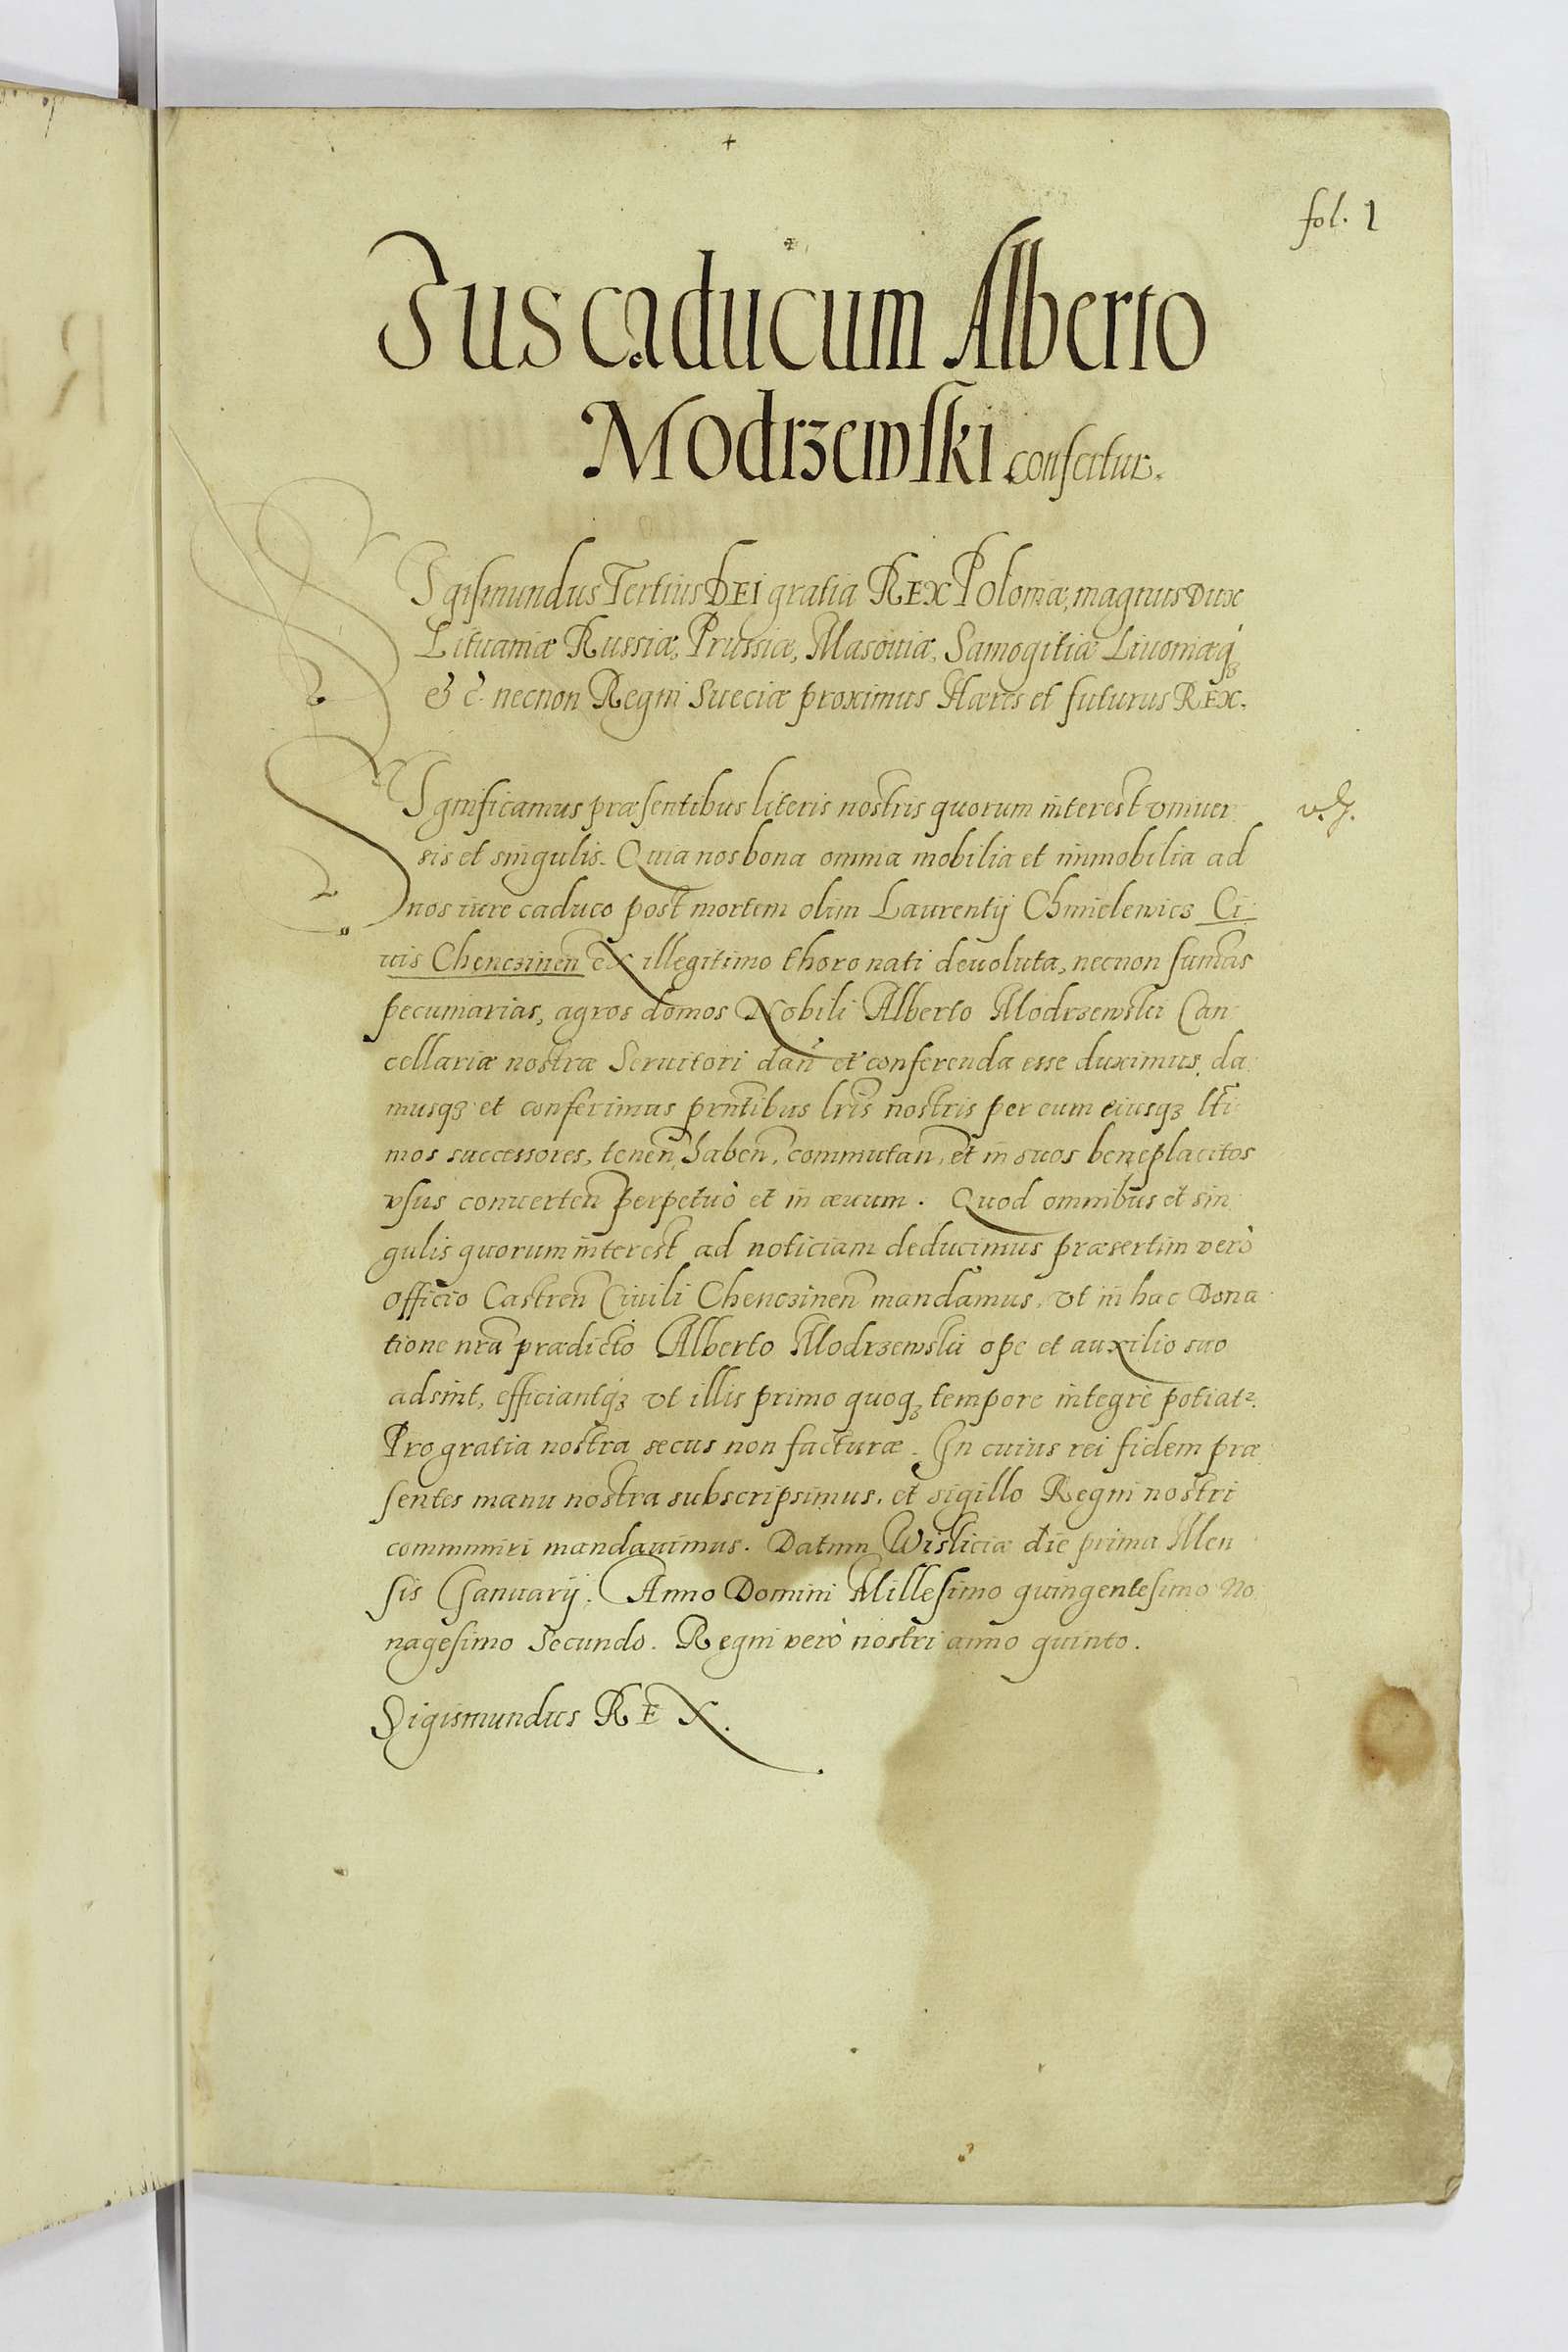 fol. 1
Ius caducum Alberto
Modrzewski confertur.
Sigismundus Tertius DEI gratia REX Poloniæ, magnus Dux
Lituaniæ Russiæ, Prussiæ, Masouiæ, Samogitiæ Liuoniæq₃
& c̃. necnon Regni Sueciæ proximus Hæres et futurus REX.
Significamus præsentibus literis nostris quorum interest vniuer
sis et singulis. Quia nos bona omnia mobilia et immobilia ad
nos iure caduco post mortem olim Laurentij Chmielewicz Ci
uis Chenczinen̄ ex illegitimo thoro nati deuoluta, necnon sum̄as
pecuniarias, agros domos Nobili Alberto Modrzewski Can
cellariæ nostræ Seruitori dan̄ et conferenda esse duximus, da
musq₃ et conferimus prn̄tibus lr̄is nostris per eum eiusq₃ lt̄i
mos successores, tenen̄, haben̄, commutan̄, et in suos beneplacitos
vsus conuerten̄ perpetuò et in æuum. Quod omnibus et sin
gulis quorum interest ad noticiam deducimus præsertim verò
Officio Castren̄ Ciuili Chenczinen̄ mandamus, vt in hac Dona
tione nr̄a prædicto Alberto Modrzewski ope et auxilio suo
adsint, efficiantq₃ vt illis primo quoq₃ tempore integrè potiat².
Pro gratia nostra secus non facturæ. In cuius rei fidem præ
sentes manu nostra subscripsimus, et sigillo Regni nostri
communiri mandauimus. Datum Wisliciæ die prima Men
sis Ianuarij. Anno Domini Millesimo quingentesimo No
nagesimo Secundo. Regni verò nostri anno quinto.
Sigismundus REX.